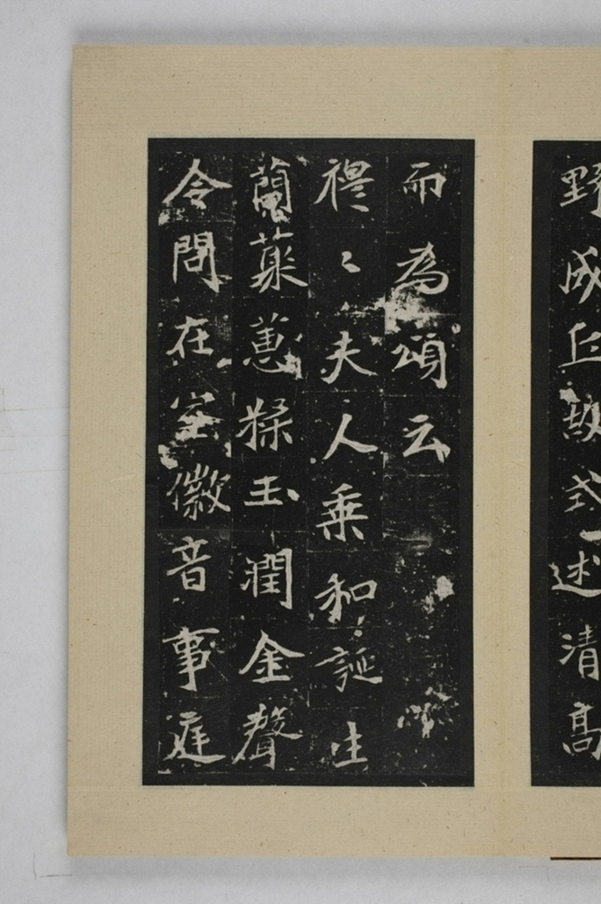 野成丘故式述清高
而為頌云
禮〻夫人乗和誕生
蘭蘂蕙糅玉潤金聲
令問在室徽音事庭